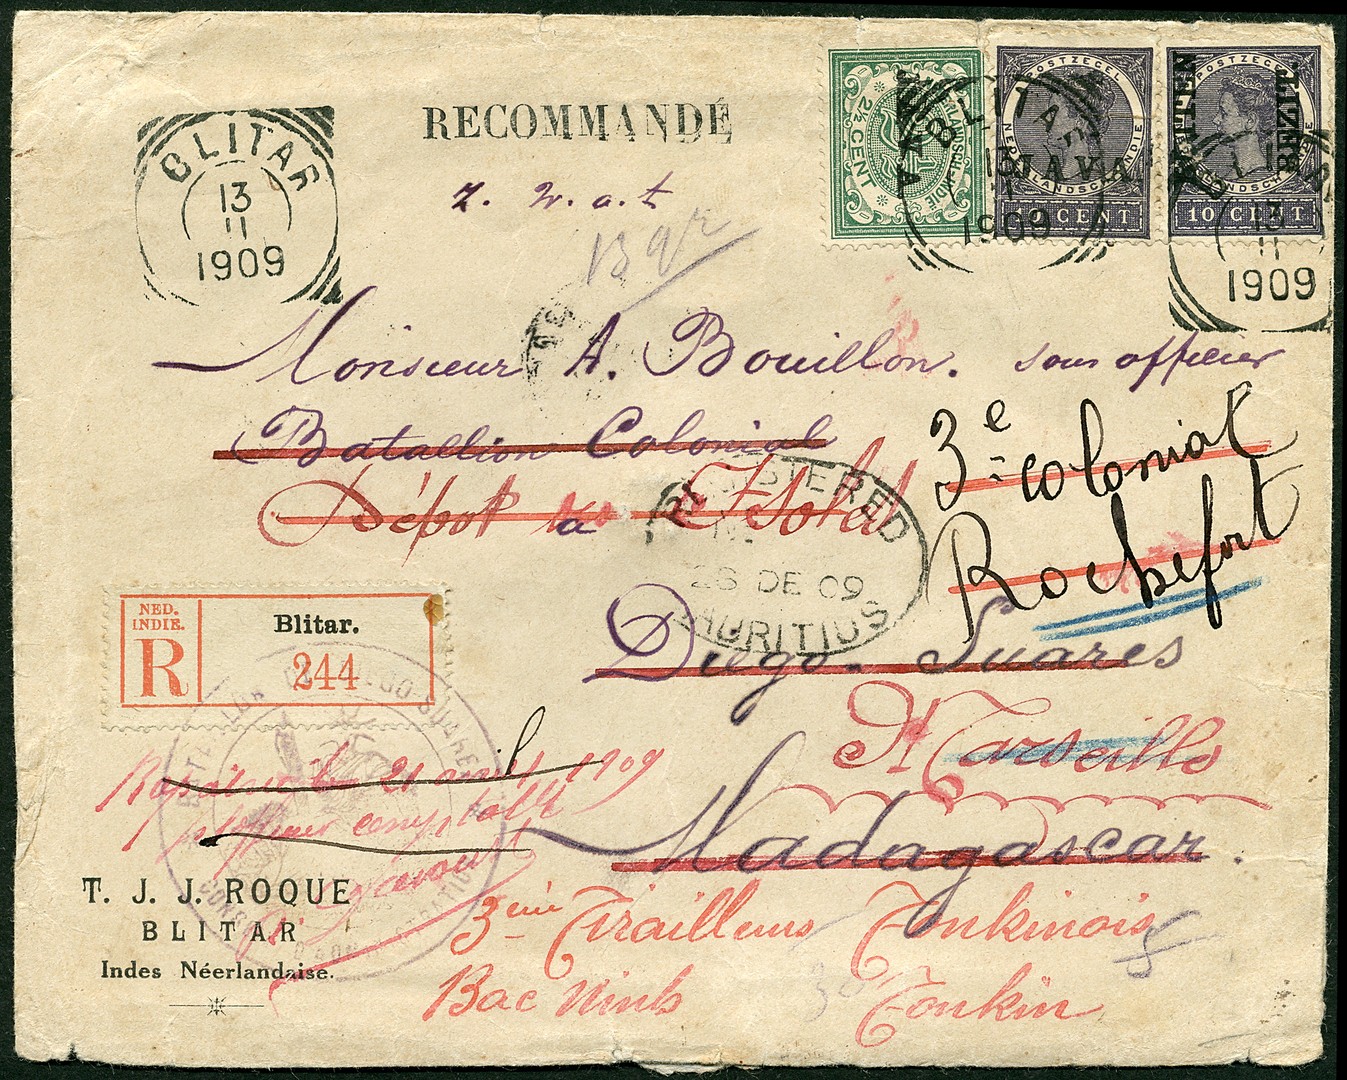 RECOMMANDÉ
BLITAR
13
11
1909
2½ CENT
JAVA
POSTZEGEL
NEDERLANDSCH-INDIË
10 CENT
JAVA
POSTZEGEL
NEDERLANDSCH-INDIË
10 CENT
BUITEN BEZIT.
BLITAR
13
11
1909
BLITAR
13
11
1909
Monsieur A. Bouillon. sous officier
Batallion Colonial
Dépot
3e colonial
Rochefort
REGISTERED
28 DE 09
MAURITIUS
NED. INDIE.
R
Blitar.
244
Diego-Suares
Marseille
Madagascar.
21 avril 1909
T. J. J. ROQUE
BLITAR
Indes Néerlandaise.
3ème Tirailleurs Tonkinois
Bac Ninh Tonkin